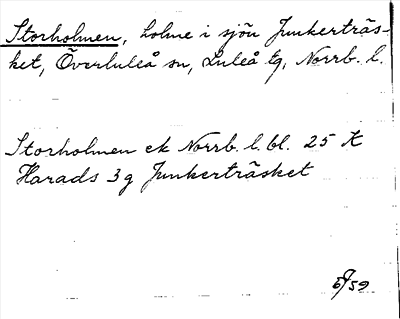 Storholmen, holme i sjön Junkerträs-
ket, Överluleå sn, Luleå tg, Norrb. l.
Storholmen ek Norrb. l. bl. 25 K
Harads 3 g Junkerträsket
/59